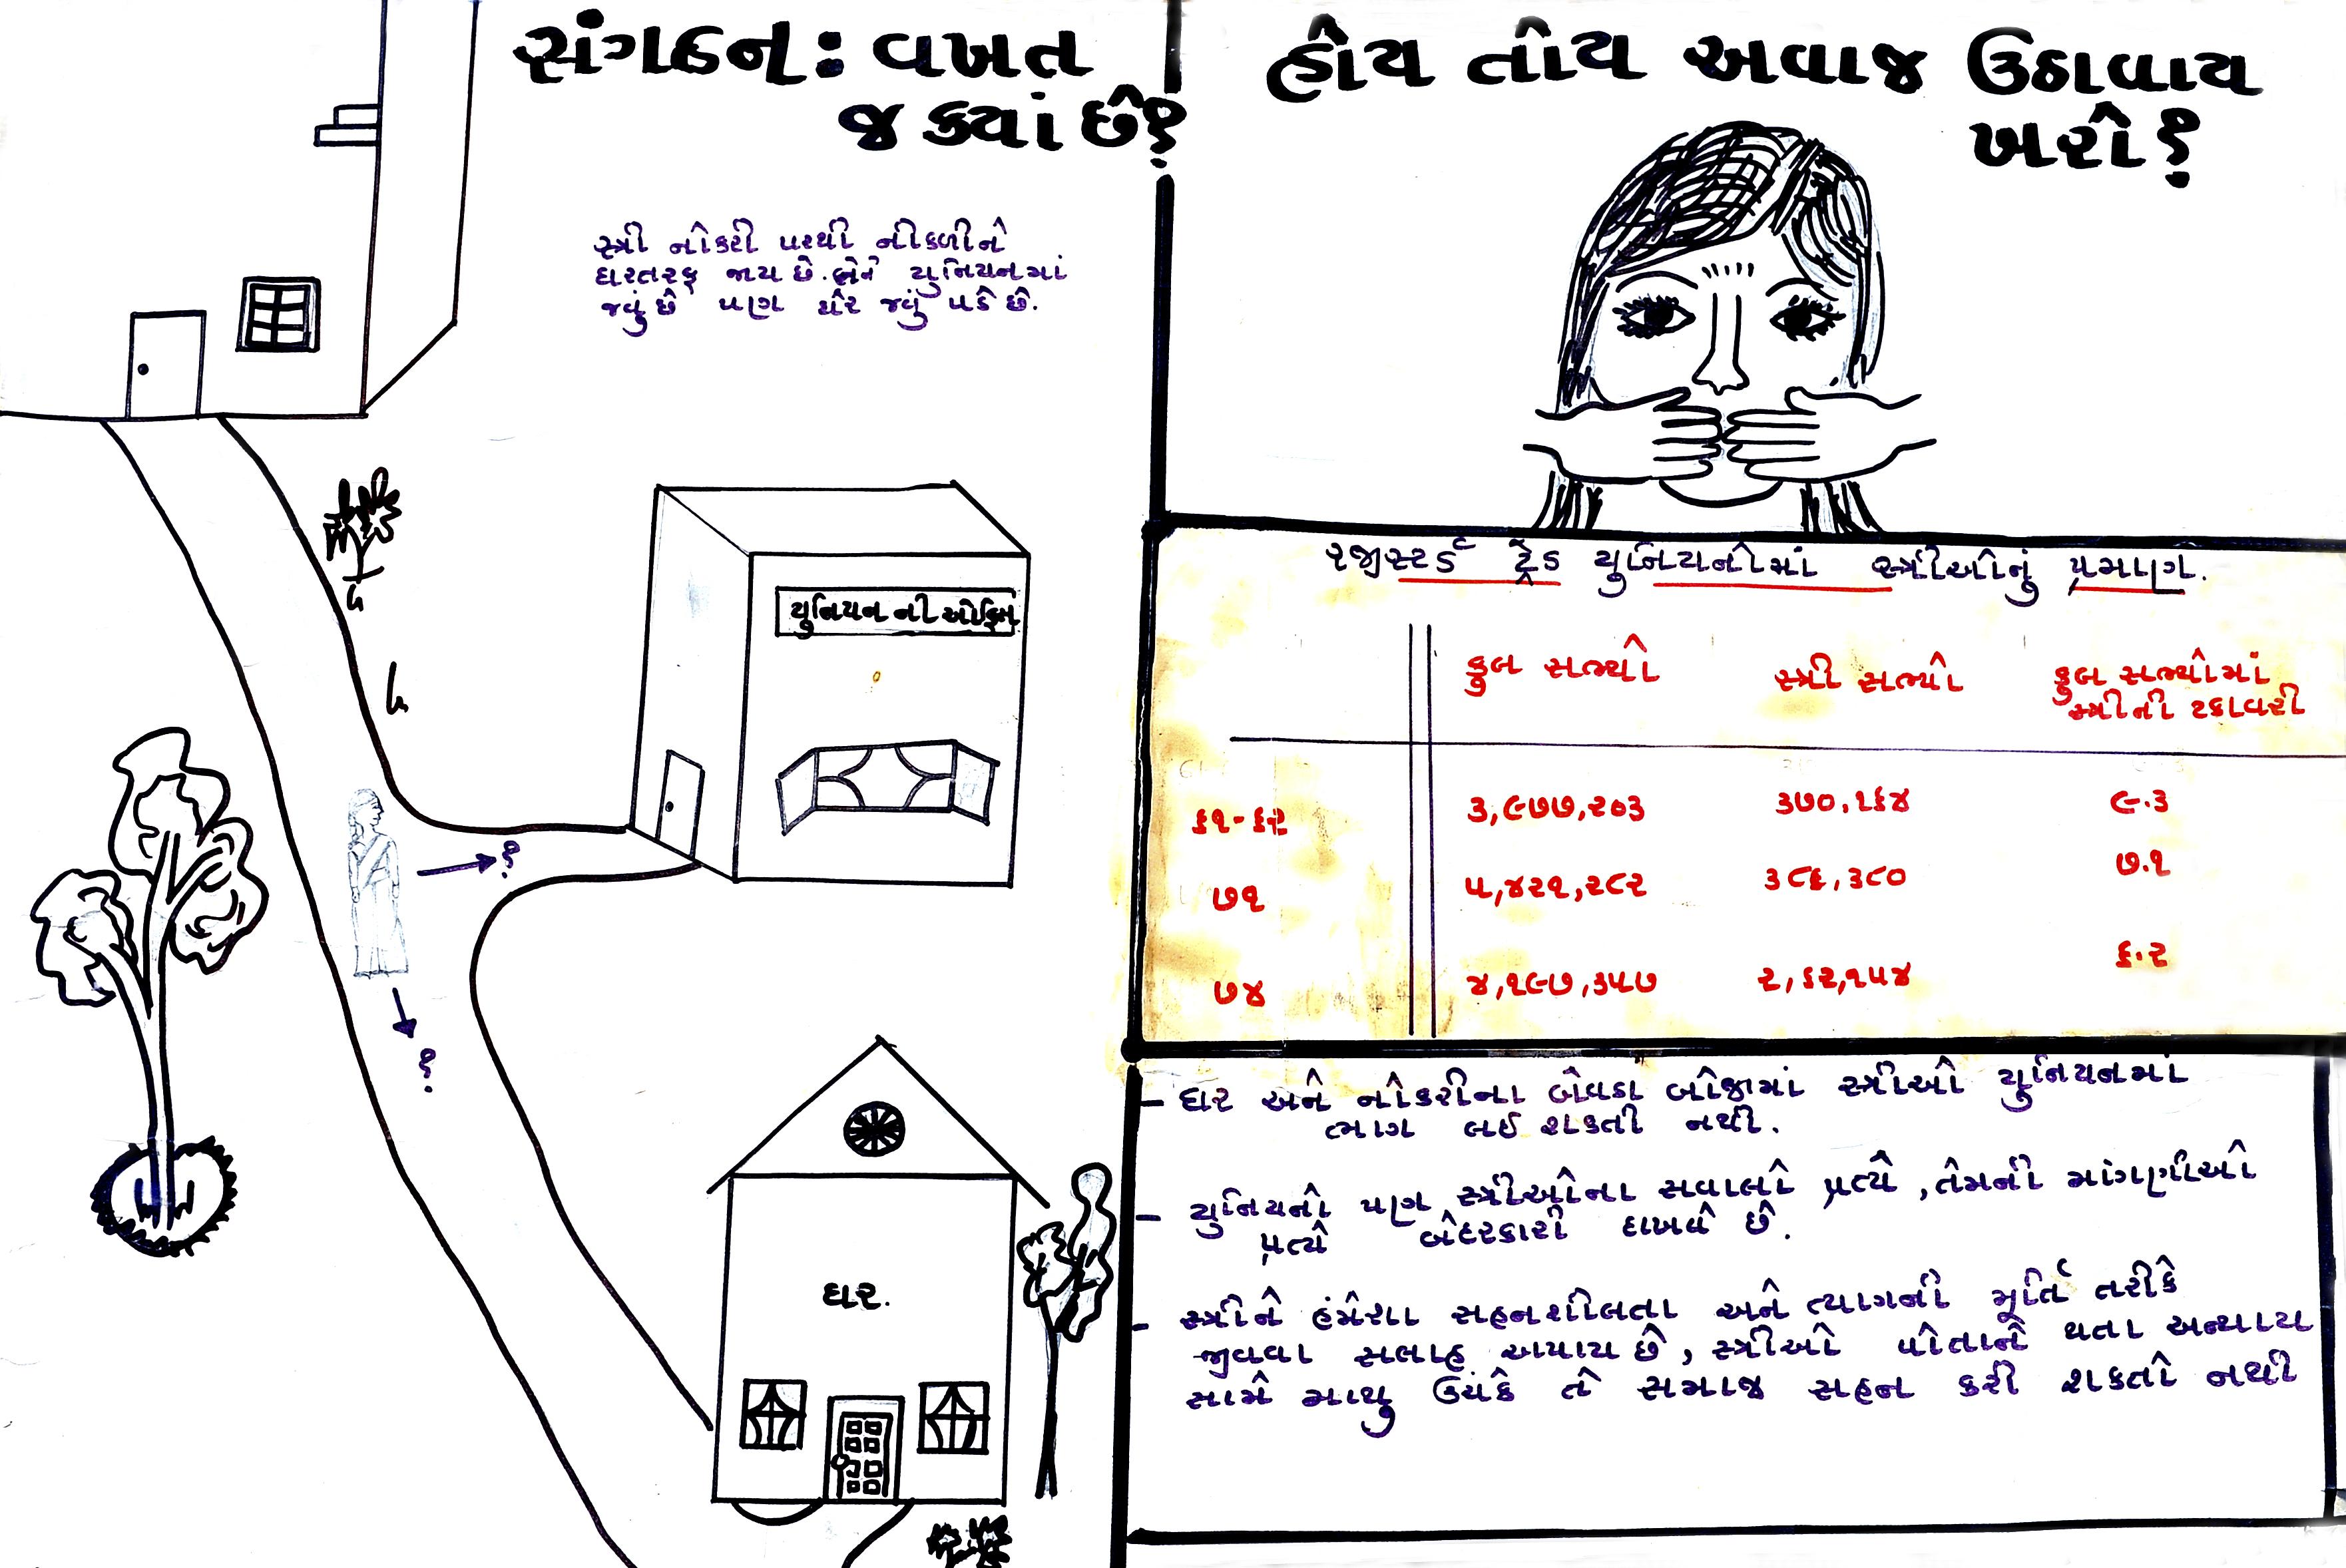 સંગઠન: વખત
જ ક્યાં છે?
હોય તોય અવાજ ઉઠાવાય
ખરો?
સ્ત્રી નોકરી પરથી નીકળીને
ઘરતરફ જાય છે. એને યુનિયનમાં
જવું છે પણ ઘેર જવું પડે છે.
યુનિયન ની ઓફિસ
?
?
ઘર.
રજીસ્ટર્ડ ટ્રેડ યુનિયનોમાં સ્ત્રીઓનું પ્રમાણ.
કુલ સભ્યો સ્ત્રી સભ્યો કુલ સભ્યોમાં
સ્ત્રીની ટકાવરી
૬૧-૬૨ ૩,૯૭૭,૨૦૩ ૩૭૦,૧૬૪ ૯.૩
૭૧ ૫,૪૨૧,૨૮૨ ૩૮૬,૩૮૦ ૭.૧
૭૪ ૪,૧૯૭,૩૫૭ ૨,૬૨,૧૫૪ ૬.૨
- ઘર અને નોકરીના બેવડા બોજામાં સ્ત્રીઓ યુનિયનમાં
ભાગ લઈ શકતી નથી.
- યુનિયનો પણ સ્ત્રીઓના સવાલો પ્રત્યે, તેમની માંગણીઓ
પ્રત્યે બેદરકારી દાખવે છે.
- સ્ત્રીને હંમેશા સહનશીલતા અને ત્યાગની મૂર્તિ તરીકે
જીવવા સલાહ અપાય છે, સ્ત્રીઓ પોતાને થતા અન્યાય
સામે માથુ ઉંચકે તો સમાજ સહન કરી શકતો નથી